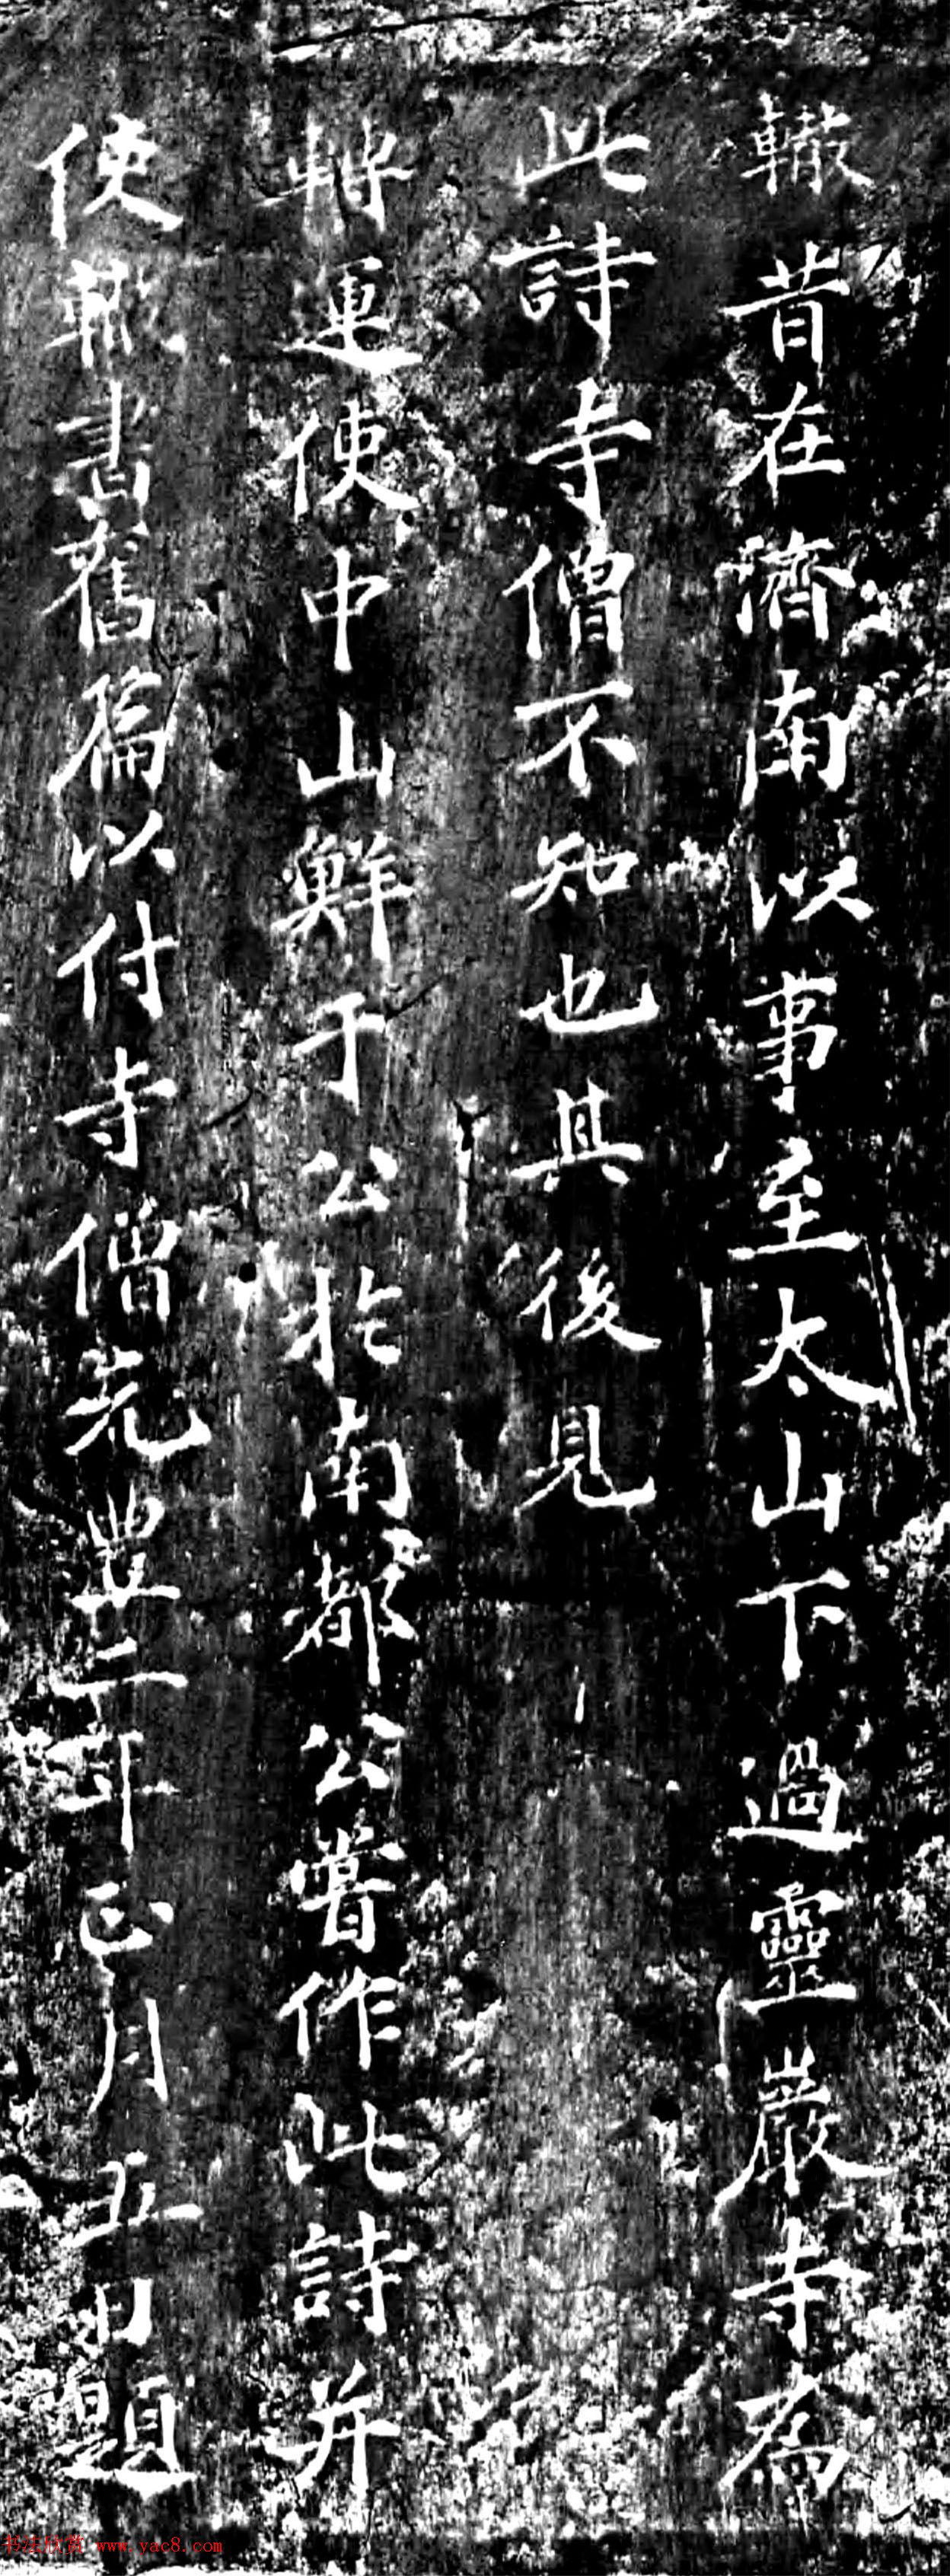 轍昔在濟南以事至太山下過靈巖寺為
此詩寺僧不知也其後見
轉運使中山鮮于公於南都公嘗作此詩并
使轍書舊篇以付寺僧元豐二年正月五日題
书法欣赏 www.yac8.com